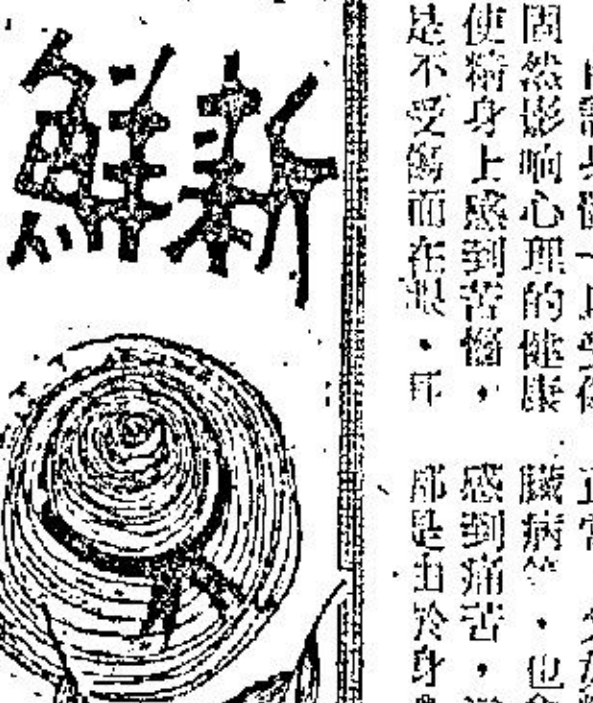 固然影响心理的健康
使精身上感到苦惱，
是不受傷而在眼・耳
臟病等，也
感到痛苦，
都是由於身
新鮮